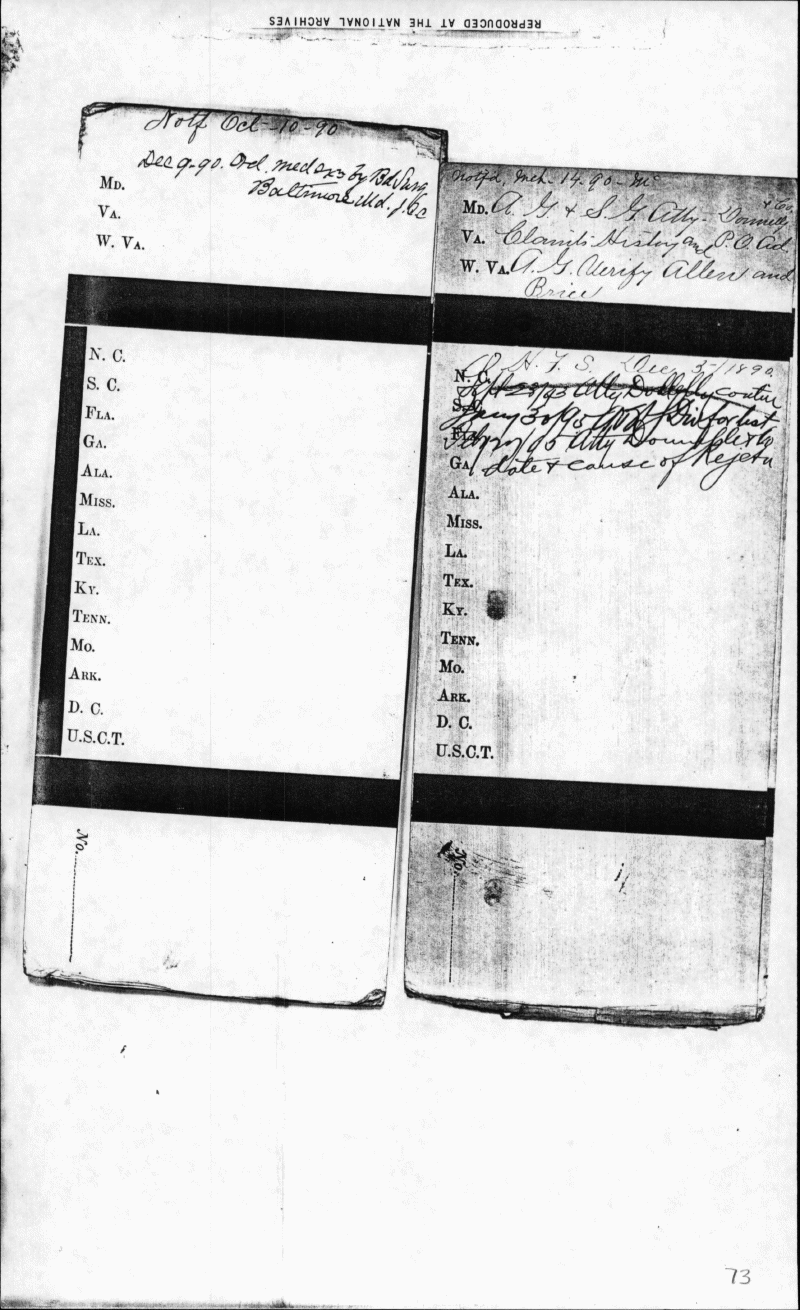 REPRODUCED AT THE NATIONAL ARCHIVES
Notf Oct-10-90
Dec 9-90. Ord. med ex by Bd Surg
Baltimore Md.
MD.
VA.
W. VA.
N. C.
S. C.
FLA.
GA.
ALA.
MISS.
LA.
TEX.
KY.
TENN.
MO.
ARK.
D. C.
U.S.C.T.
No.
Notf'd, Mch. 14. 90-
MD. A. G. & S. G. Atty- Donnelly & Co.
VA. Claimt's History and P.O. ad.
W. VA. A. G. Verify Allen and
Brice
H. F. S. Dec 3-/1890
N. C.
S. C.
FLA.
Atty
GA. date & cause of Rejctn
ALA.
MISS.
LA.
TEX.
KY.
TENN.
MO.
ARK.
D. C.
U.S.C.T.
No.
73